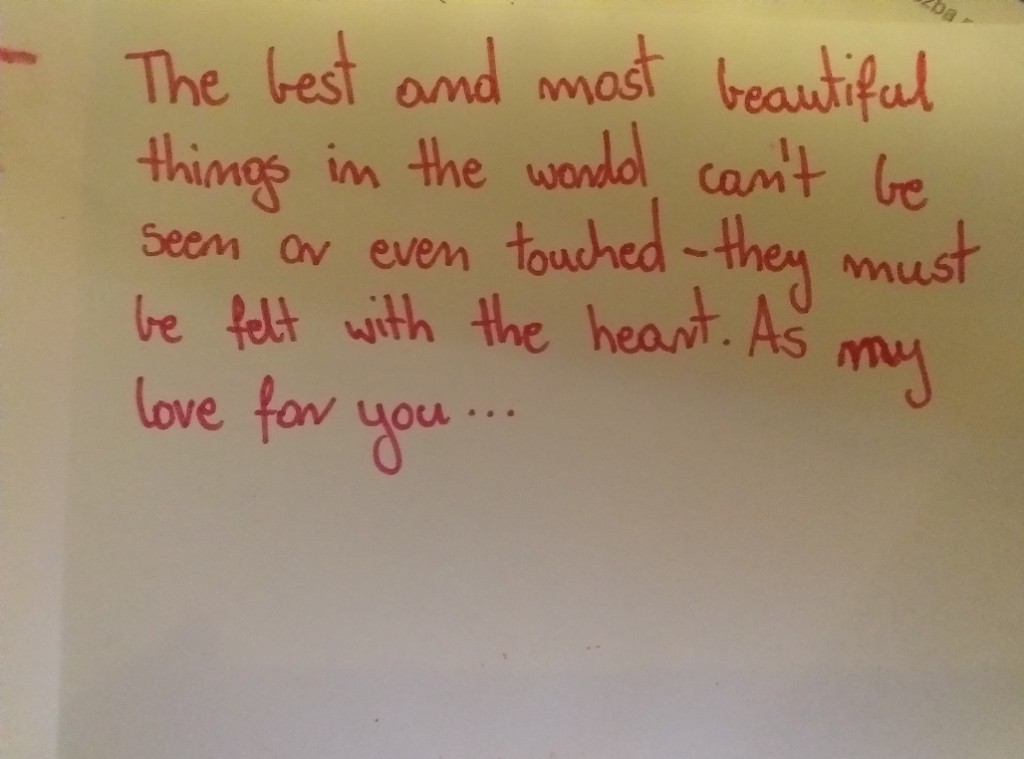 The best and most beautiful
things in the world can't be
seen or even touched - they must
be felt with the heart. As my
love for you...